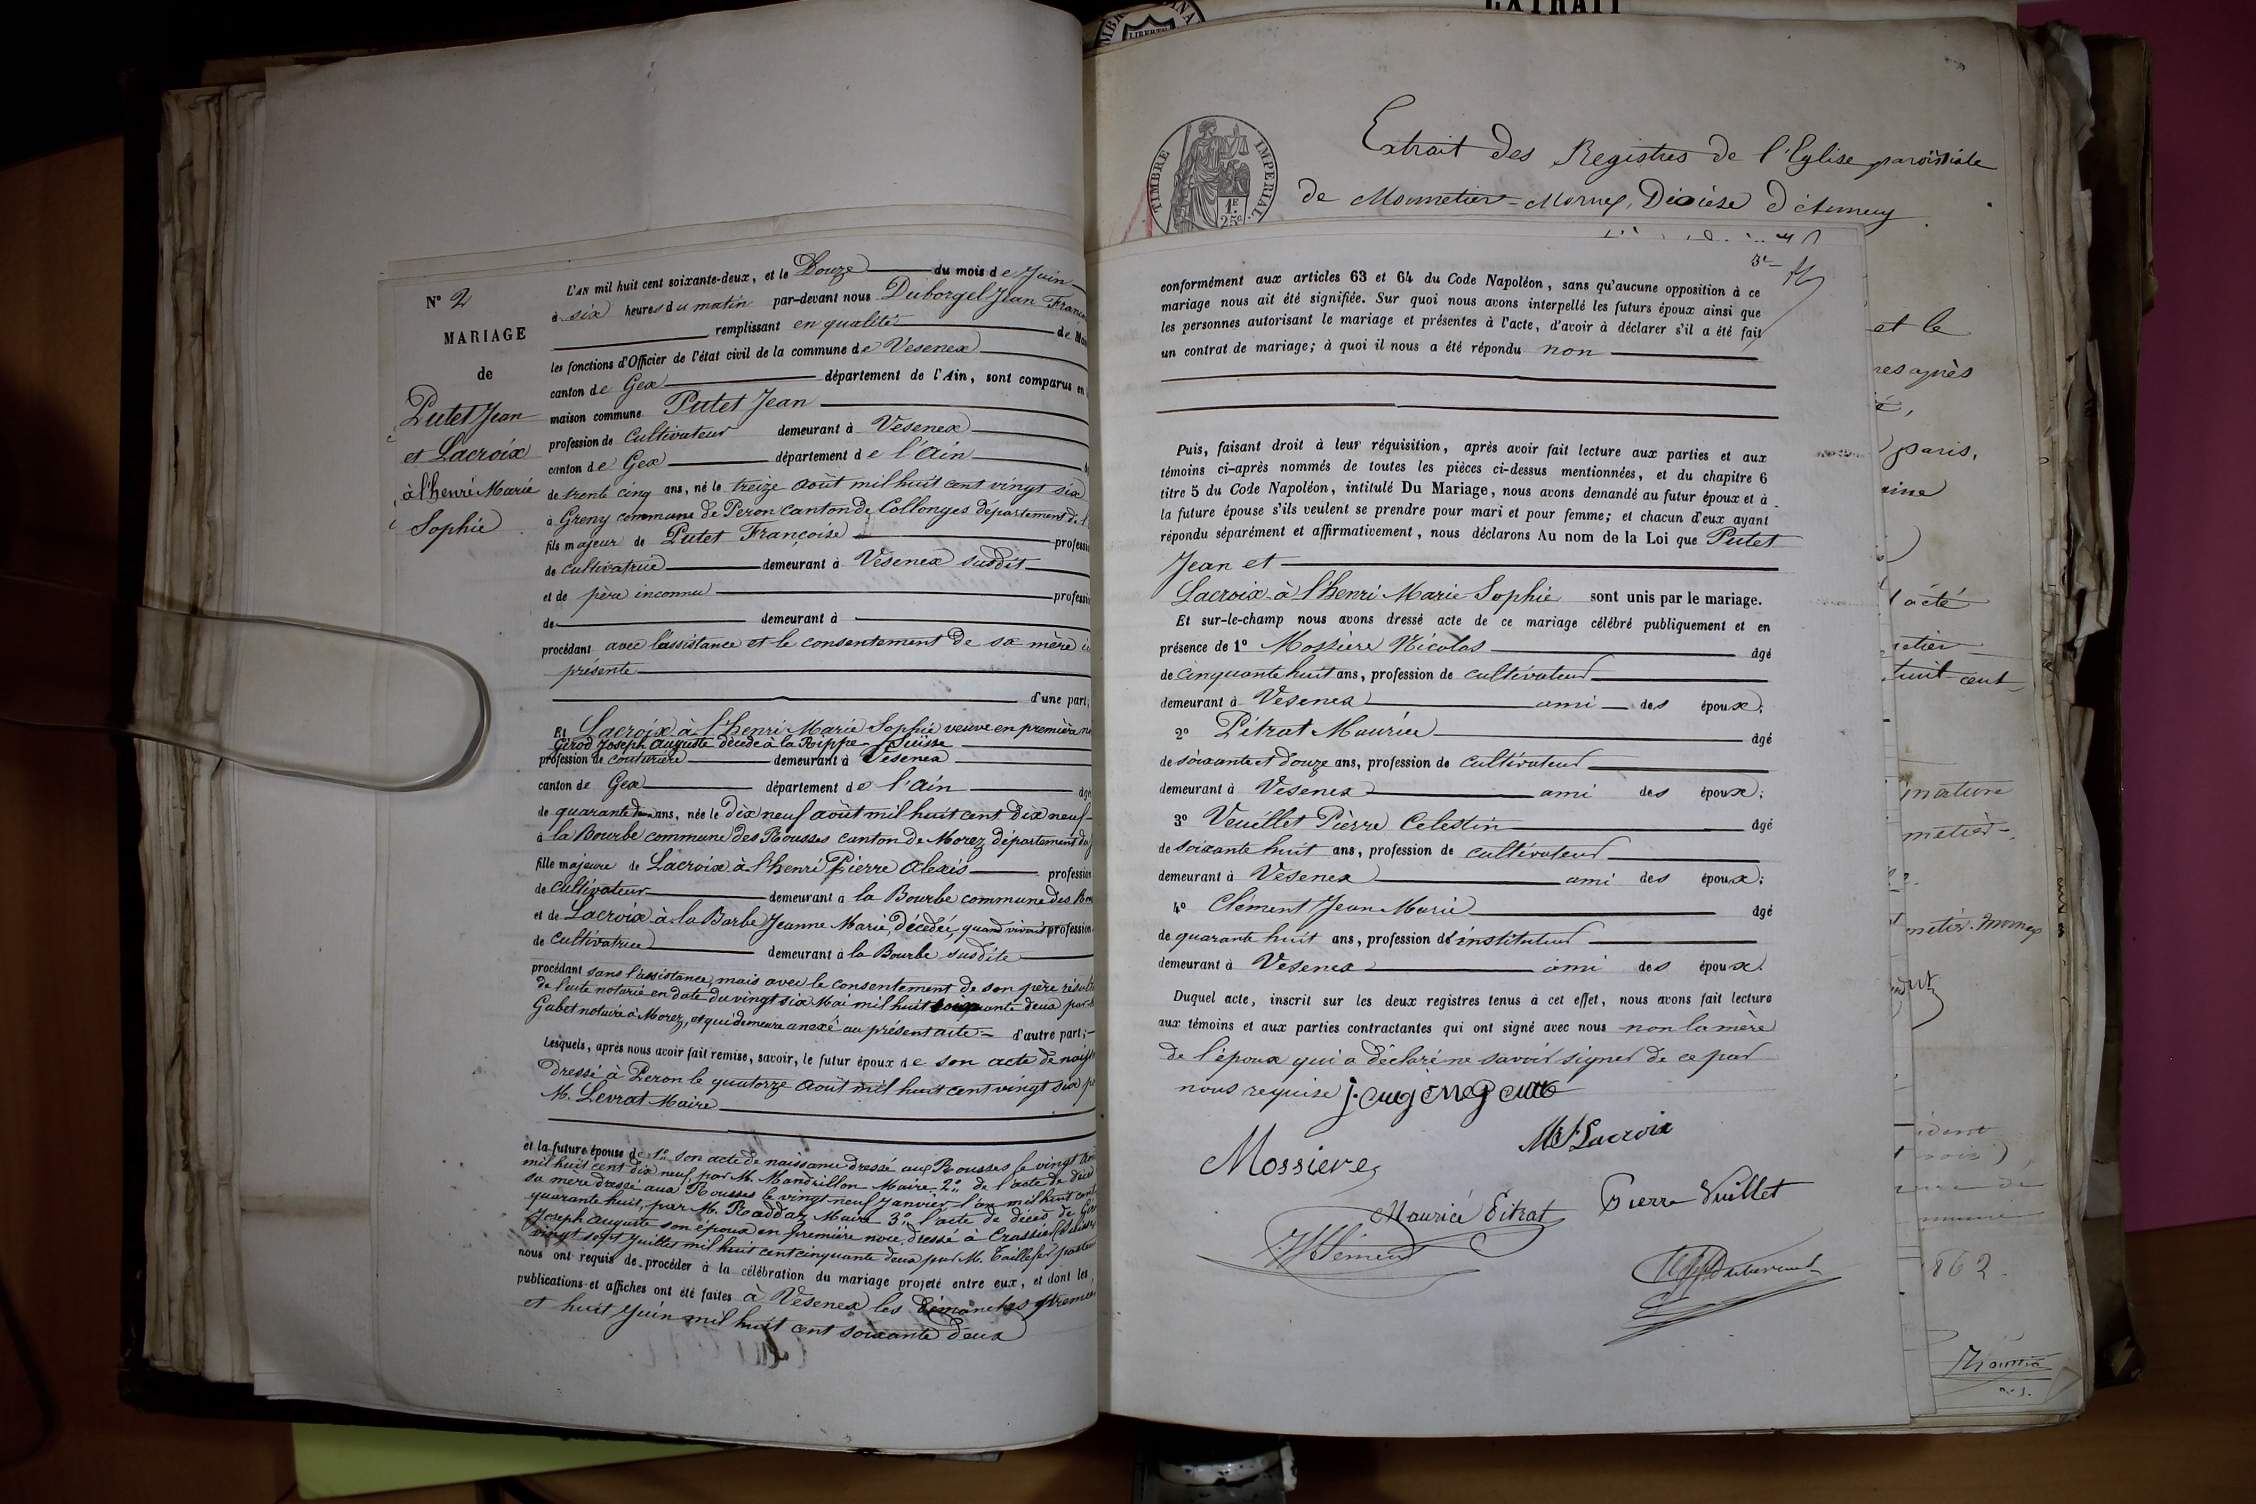 N° 2
MARIAGE
de
Putet Jean
et Lacroix
à l'henri Marie
Sophie
L'AN mil huit cent soixante-deux, et le Douze du mois de Juin
à six heures du matin par-devant nous Duborgel Jean
remplissant en qualité de
les fonctions d'Officier de l'état civil de la commune de Vesenex
canton de Gex département de l'Ain, sont comparus en
maison commune Putet Jean
profession de Cultivateur demeurant à Vesenex
canton de Gex département de l'Ain
de trente cinq ans, né le treize août mil huit cent vingt six
à Greny commune de Peron canton de Collonges département de
fils majeur de Putet Françoise
de cultivatrice demeurant à Vesenex susdit
et de père inconnu
de demeurant à
procédant avec l'assistance et le consentement de sa mère
présente
d'une part,
Et Lacroix à l'henri Marie Sophie veuve en première
Girod Joseph Auguste décédé à la Rippe Suisse
profession de couturière demeurant à Vesenex
canton de Gex département de l'Ain
de quarante ans, née le Dix neuf août mil huit cent dix neuf
à la Bourbe commune des Rousses canton de Morez département du
fille majeure de Lacroix à l'henri Pierre Alexis profession
de cultivateur demeurant à la Bourbe commune des
et de Lacroix à la Barbe Jeanne Marie, Décédée, quand vivait profession
de cultivatrice demeurant à la Bourbe susdite
procédant sans l'assistance, mais avec le consentement de son père
de l'acte notarié en date du vingt six Mai mil huit soixante deux par
Gabet notaire à Morez, et qui demeure anexé au présent acte d'autre part;
Lesquels, après nous avoir fait remise, savoir, le futur époux de son acte de
Dressé à Peron le quatorze août mil huit cent vingt six
M. Levrat Maire
et la future épouse de 1° son acte de naissance dressé aux Rousses le vingt
mil huit cent dix neuf, par M. Mandrillon Maire 2° de l'acte de
sa mère dressé aux Rousses le vingt neuf Janvier l'an mil huit cent
quarante huit, par M. Raddaz Maire 3° l'acte de décès de
Joseph Auguste son époux en première noce, dressé à Crassier
vingt sept Juillet mil huit cent cinquante deux par M. Taillefer pasteur
nous ont requis de procéder à la célébration du mariage projeté entre eux, et dont les
publications et affiches ont été faites à Vesenex les Dimanches premier
et huit Juin mil huit cent soixante deux
EXTRAIT
LIBERTÉ
TIMBRE IMPERIAL
1F
25c.
Extrait des Registres de l'Eglise paroissiale
de Monnetier-Mornex, Diocèse d'Annecy
conformément aux articles 63 et 64 du Code Napoléon, sans qu'aucune opposition à ce
mariage nous ait été signifiée. Sur quoi nous avons interpellé les futurs époux ainsi que
les personnes autorisant le mariage et présentes à l'acte, d'avoir à déclarer s'il a été fait
un contrat de mariage; à quoi il nous a été répondu non
Puis, faisant droit à leur réquisition, après avoir fait lecture aux parties et aux
témoins ci-après nommés de toutes les pièces ci-dessus mentionnées, et du chapitre 6
titre 5 du Code Napoléon, intitulé Du Mariage, nous avons demandé au futur époux et à
la future épouse s'ils veulent se prendre pour mari et pour femme; et chacun d'eux ayant
répondu séparément et affirmativement, nous déclarons Au nom de la Loi que Putet
Jean et
Lacroix à l'henri Marie Sophie sont unis par le mariage.
Et sur-le-champ nous avons dressé acte de ce mariage célébré publiquement et en
présence de 1° Mossiere Nicolas âgé
de cinquante huit ans, profession de cultivateur
demeurant à Vesenex ami des époux;
2° Pétrat Maurice âgé
de soixante et douze ans, profession de cultivateur
demeurant à Vesenex ami des époux;
3° Veuillet Pierre Celestin âgé
de soixante huit ans, profession de cultivateur
demeurant à Vesenex ami des époux;
4° Clément Jean Marie âgé
de quarante huit ans, profession d'instituteur
demeurant à Vesenex ami des époux.
Duquel acte, inscrit sur les deux registres tenus à cet effet, nous avons fait lecture
aux témoins et aux parties contractantes qui ont signé avec nous non la mère
de l'époux qui a déclaré ne savoir signer de ce par
nous requise
M S Lacroix
Mossiere
Maurice Pitrat
Pierre Vuillet
et le
après
paris,
cent
862.